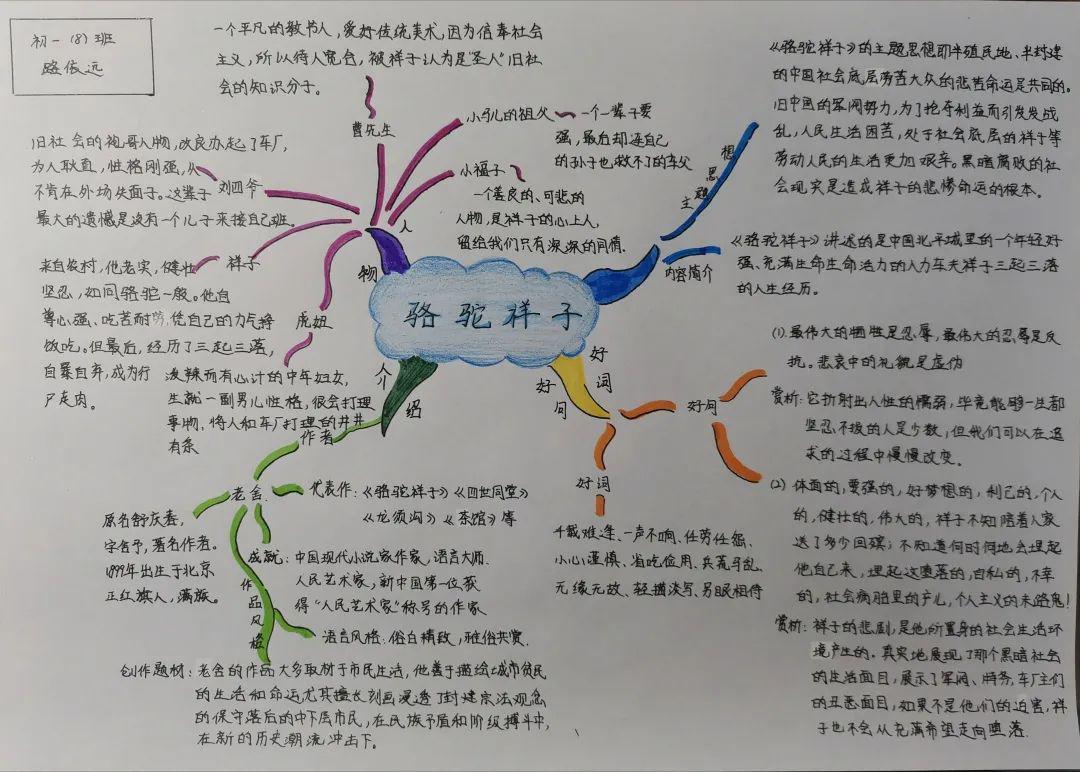 初一(8)班
路依远
一个平凡的教书人,爱好传统美术,因为信奉社会
主义,所以待人宽合,被祥子认为是"圣人"旧社
会的知识分子。
曹先生
小马儿的祖父
一个一辈子要
强,最后却连自己
的孙子也救不了的车父
小福子
一个善良的、可悲的
人物,是祥子的心上人,
留给我们只有深深的同情.
旧社会的袍哥人物,改良办起了车厂,
为人耿直,性格刚强,从
不肯在外场失面子。这辈子
最大的遗憾是没有一个儿子来接自己班。
刘四爷
来自农村,他老实,健壮
坚忍,如同骆驼一般。他自
尊心强、吃苦耐劳,凭自己的力气挣
饭吃。但最后,经历了三起三落,
自暴自弃,成为行
尸走肉。
祥子
虎妞
泼辣而有心计的中年妇女,
生就一副男儿性格,很会打理
事物,将人和车厂打理的井井
有条
人物
骆驼祥子
主题思想
《骆驼祥子》的主题思想即半殖民地、半封建
的中国社会底层劳苦大众的悲苦命运是共同的。
旧中国的军阀势力,为了抢夺利益而引发发战
乱,人民生活困苦,处于社会底层的祥子等
劳动人民的生活更加艰辛。黑暗腐败的社
会现实是造成祥子的悲惨命运的根本。
内容简介
《骆驼祥子》讲述的是中国北平城里的一个年轻好
强、充满生命生命活力的人力车夫祥子三起三落
的人生经历。
好词好句
好句
(1).最伟大的牺牲是忍辱,最伟大的忍辱是反
抗。悲哀中的礼貌是虚伪
赏析:它折射出人性的懦弱,毕竟能够一生都
坚忍不拔的人是少数,但我们可以在追
求的过程中慢慢改变。
(2) 体面的,要强的,好梦想的,利己的,个人
的,健壮的,伟大的,祥子不知陪着人家
送了多少回殡;不知道何时何地会埋起
他自己来,埋起这堕落的,自私的,不幸
的,社会病胎里的产儿,个人主义的末路鬼!
赏析:祥子的悲剧,是他所置身的社会生活环
境产生的。真实地展现了那个黑暗社会
的生活面目,展示了军阀、特务,车厂主们
的丑恶面目,如果不是他们的迫害,祥
子也不会从充满希望走向堕落.
好词
千载难逢、一声不响、任劳任怨、
小心谨慎、省吃俭用、兵荒马乱、
无缘无故、轻描淡写、另眼相待
介绍
作者
老舍.
原名舒庆春,
字舍予,著名作者。
1899年出生于北京
正红旗人,满族。
代表作:《骆驼祥子》《四世同堂》
《龙须沟》《茶馆》等
成就:中国现代小说家作家,语言大师.
人民艺术家,新中国第一位获
得"人民艺术家"称号的作家
作品风格
语言风格:俗白精致,雅俗共赏.
创作题材:老舍的作品大多取材于市民生活,他善于描绘城市贫民
的生活和命运尤其擅长刻画浸透了封建宗法观念
的保守落后的中下层市民,在民族矛盾和阶级搏斗中,
在新的历史潮流冲击下。